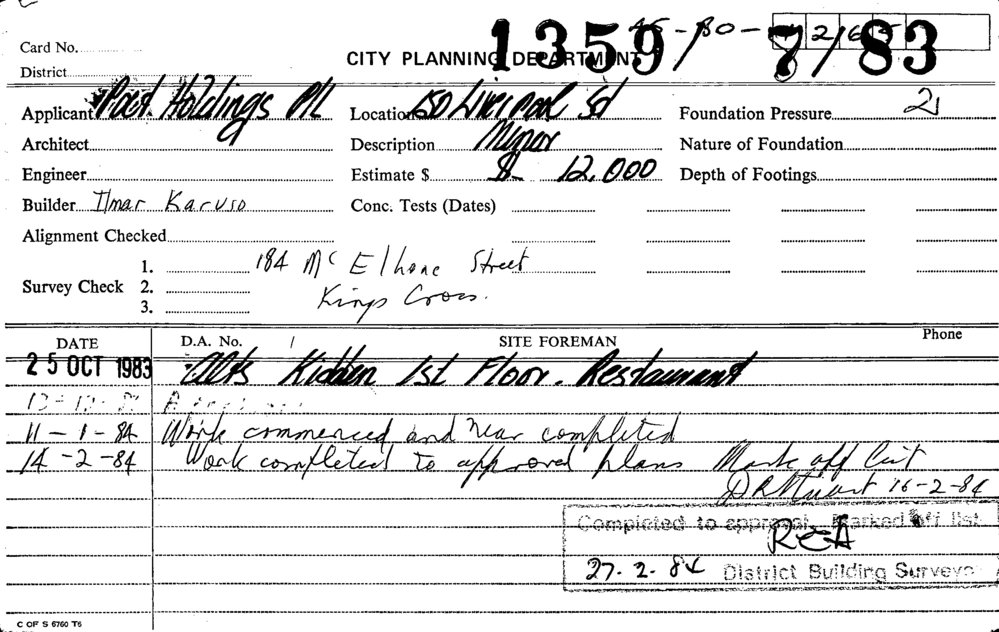 Card No.
CITY PLANNING DEPARTMENT 1359/ 7/83
District
Applicant Holdings P/L Location 150 Liverpool St Foundation Pressure 21
Architect Description Minor Nature of Foundation
Engineer Estimate $ $ 12,000 Depth of Footings
Builder Ilmar Karuso Conc. Tests (Dates)
Alignment Checked
1. 184 McElhone Street
Survey Check 2. Kings Cross.
3.
DATE D.A. No. SITE FOREMAN Phone
25 OCT 1983 Alts Kidden 1st Floor. Restaurant
11-1-84 Work commenced and near completed
14-2-84 Work completed to approved plans Mark off List
D R Stuart 16-2-84
Completed to approval. Marked off list
REA
27.2.84 District Building Surveyor
C OF S 6760 T6